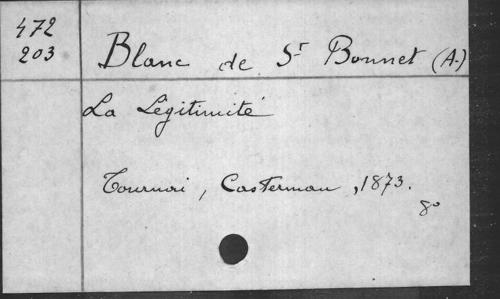 472
203
Blanc de St Bonnet (A.)
La Légitimité
Tournai, Casterman, 1873.
8°